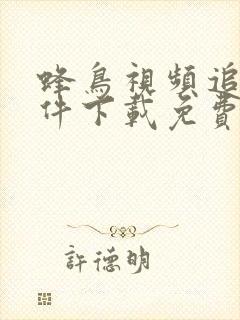 蜂鳥視頻追
件下載免費
許德明